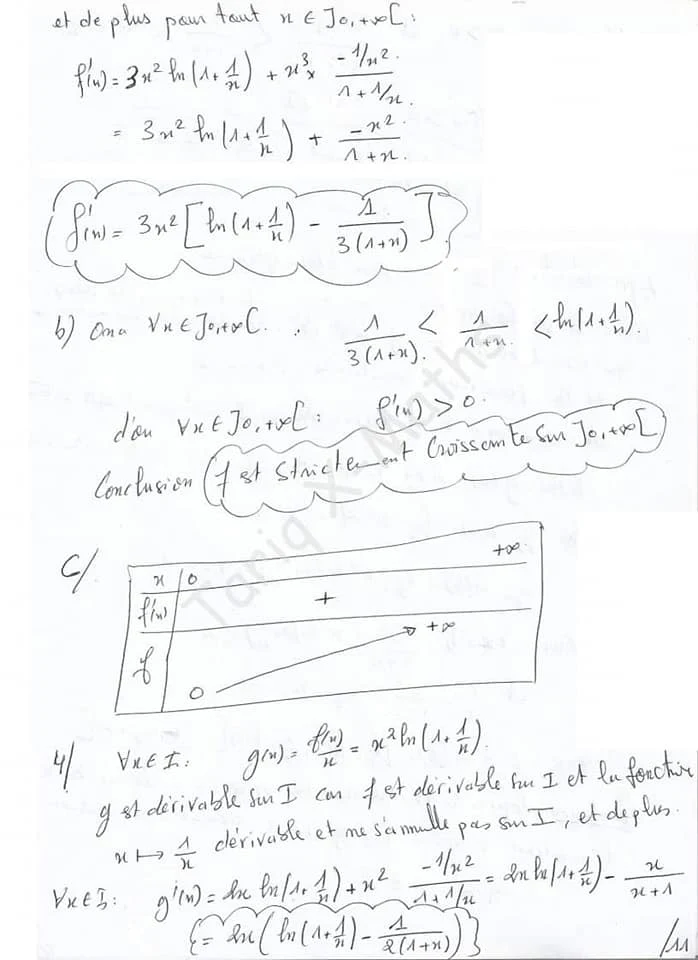 et de plus pour tout x ∈ ]0,+∞[ :
f'(x) = 3x² ln(1+1/x) + x³ × (-1/x²)/(1+1/x)
= 3x² ln(1+1/x) + (-x²)/(1+x).
f'(x) = 3x² [ln(1+1/x) - 1/(3(1+x))]
b) On a ∀x ∈ ]0,+∞[ : 1/(3(1+x)) < 1/(1+x) < ln(1+1/x).
d'où ∀x ∈ ]0,+∞[ : f'(x) > 0.
Conclusion f est strictement croissante sur ]0,+∞[
c/
x 0 +∞
f'(x) +
f 0 +∞
Tariq X-Maths
4/ ∀x ∈ I : g(x) = f(x)/x = x² ln(1+1/x).
g est dérivable sur I car f est dérivable sur I et la fonction
x ↦ 1/x dérivable et ne s'annulle pas sur I, et de plus.
∀x ∈ I : g'(x) = 2x ln(1+1/x) + x² (-1/x²)/(1+1/x) = 2x ln(1+1/x) - x/(x+1)
= 2x(ln(1+1/x) - 1/(2(1+x)))